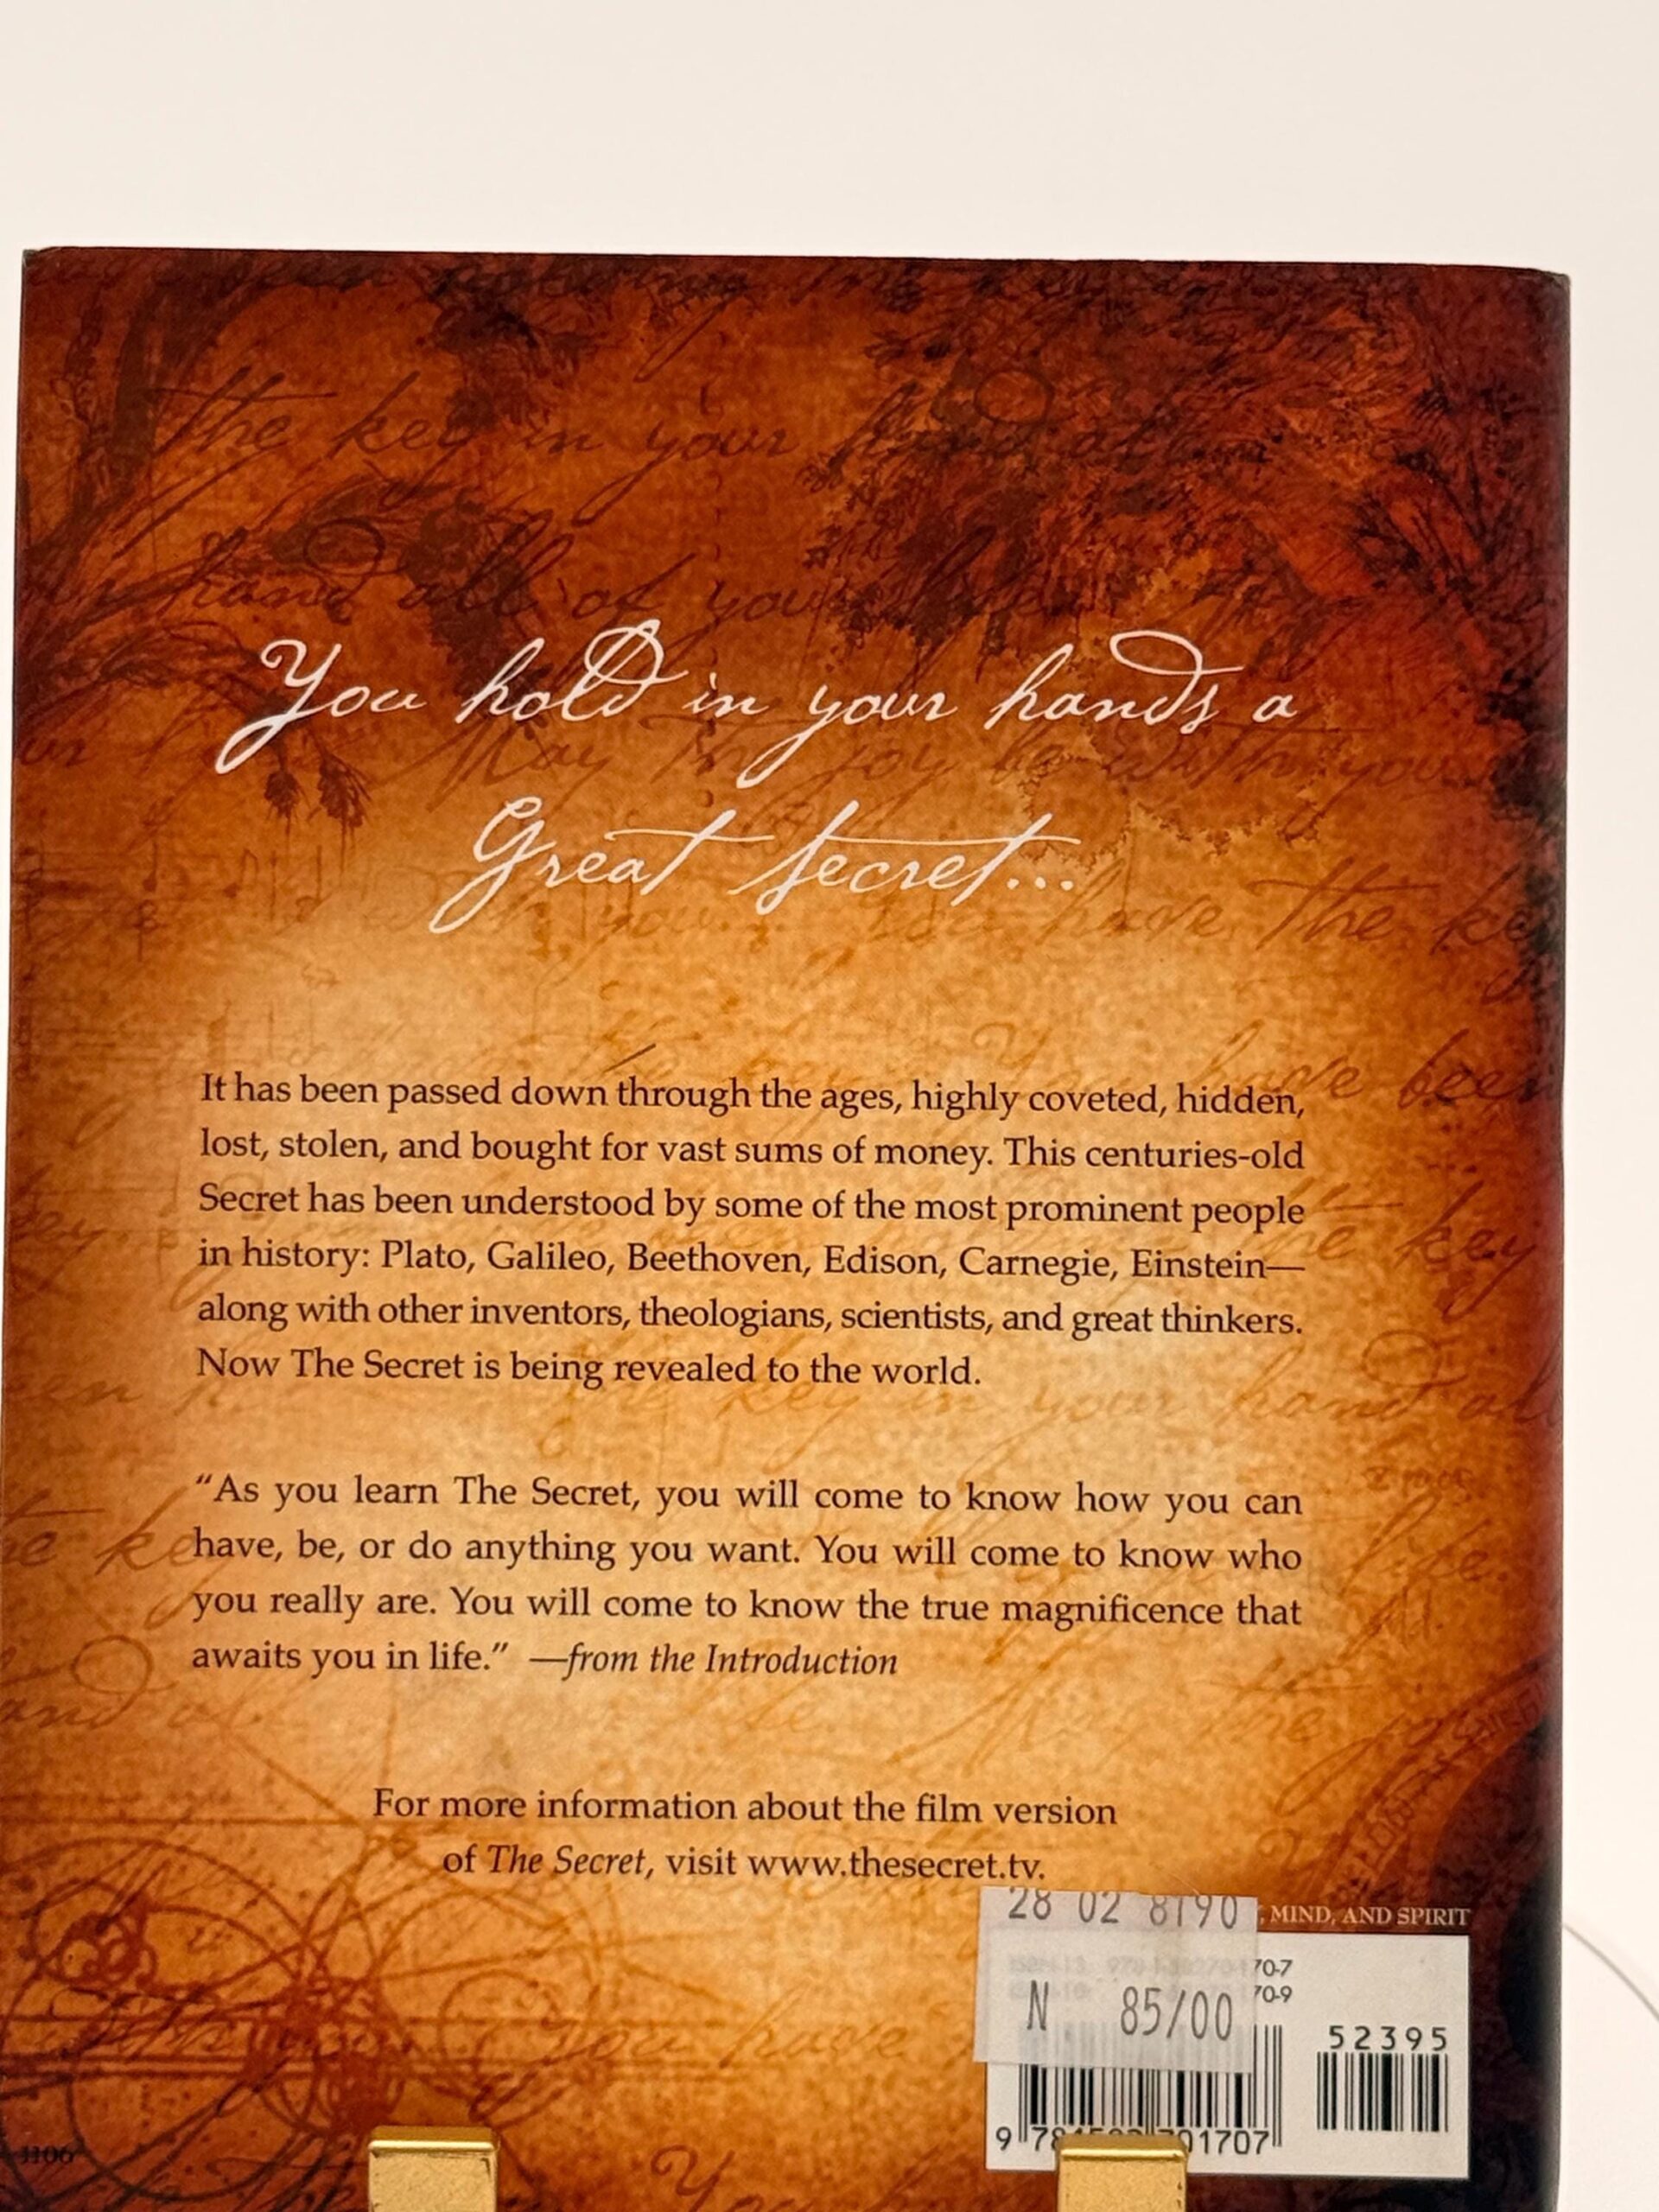 the key in your hand all
hand all of your
You hold in your hands a
May the joy be with you
Great Secret...
you have the key
have been
the key
It has been passed down through the ages, highly coveted, hidden,
lost, stolen, and bought for vast sums of money. This centuries-old
Secret has been understood by some of the most prominent people
in history: Plato, Galileo, Beethoven, Edison, Carnegie, Einstein—
along with other inventors, theologians, scientists, and great thinkers.
Now The Secret is being revealed to the world.
the key in your hand all
“As you learn The Secret, you will come to know how you can
have, be, or do anything you want. You will come to know who
you really are. You will come to know the true magnificence that
awaits you in life.” —from the Introduction
For more information about the film version
of The Secret, visit www.thesecret.tv.
28 02 8190
, MIND, AND SPIRIT
70-7
70-9
N 85/00
52395
you have
9 78 01707
1106